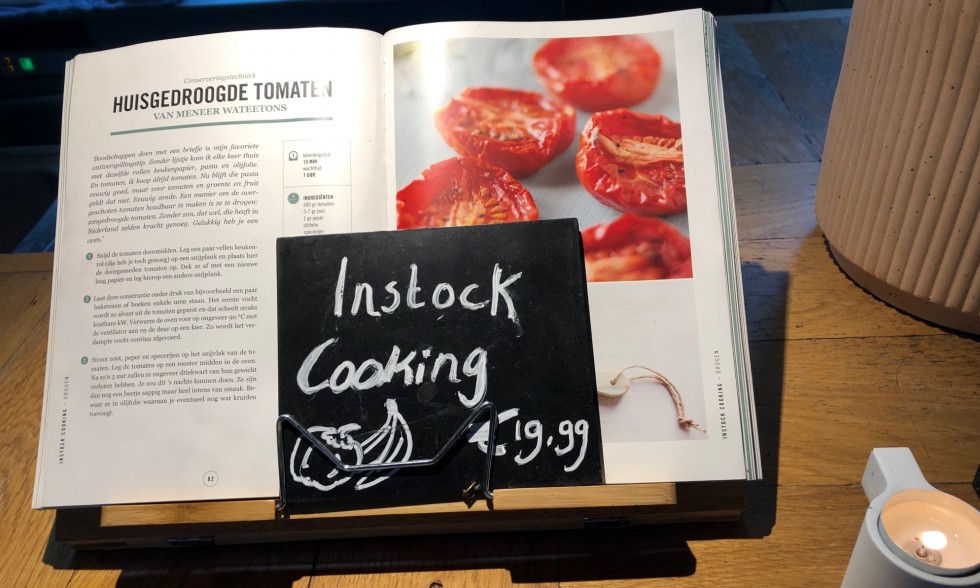 Conserveringstechniek
HUISGEDROOGDE TOMATEN
VAN MENEER WATEETONS
'Boodschappen doen met een briefje is mijn favoriete
antiverspillingstip. Zonder lijstje kom ik elke keer thuis
met dezelfde rollen keukenpapier, pasta en olijfolie.
En tomaten, ik koop áltijd tomaten. Nu blijft die pasta
eeuwig goed, maar voor tomaten en groente en fruit
geldt dat niet. Eeuwig zonde. Een manier om de over-
geschoten tomaten houdbaar te maken is ze te drogen:
zongedroogde tomaten. Zonder zon, dat wel, die heeft in
Nederland zelden kracht genoeg. Gelukkig heb je een
oven.'
1 Snijd de tomaten doormidden. Leg een paar vellen keuken-
rol (die heb je toch genoeg) op een snijplank en plaats hier
de doorgesneden tomaten op. Dek ze af met een nieuwe
laag papier en leg hierop een andere snijplank.
2 Laat deze constructie onder druk van bijvoorbeeld een paar
bakstenen of boeken enkele uren staan. Het eerste vocht
wordt zo alvast uit de tomaten geperst en dat scheelt straks
kostbare kW. Verwarm de oven voor op ongeveer 90 °C met
de ventilator aan en de deur op een kier. Zo wordt het ver-
dampte vocht continu afgevoerd.
3 Strooi zout, peper en specerijen op het snijvlak van de to-
maten. Leg de tomaten op een rooster midden in de oven.
Na zo'n 5 uur zullen ze ongeveer driekwart van hun gewicht
verloren hebben. Je zou dit 's nachts kunnen doen. Ze zijn
dan nog een beetje sappig maar heel intens van smaak. Be-
waar ze in olijfolie waaraan je eventueel nog wat kruiden
toevoegt.
bereidingstijd
15 MIN
wachttijd
7 UUR
INGREDIËNTEN
500 gr tomaten
5-7 gr zout
1 gr peper
olijfolie
specerijen
INSTOCK COOKING – DROGEN
82
Instock
Cooking
€19.99
INSTOCK COOKING – DROGEN